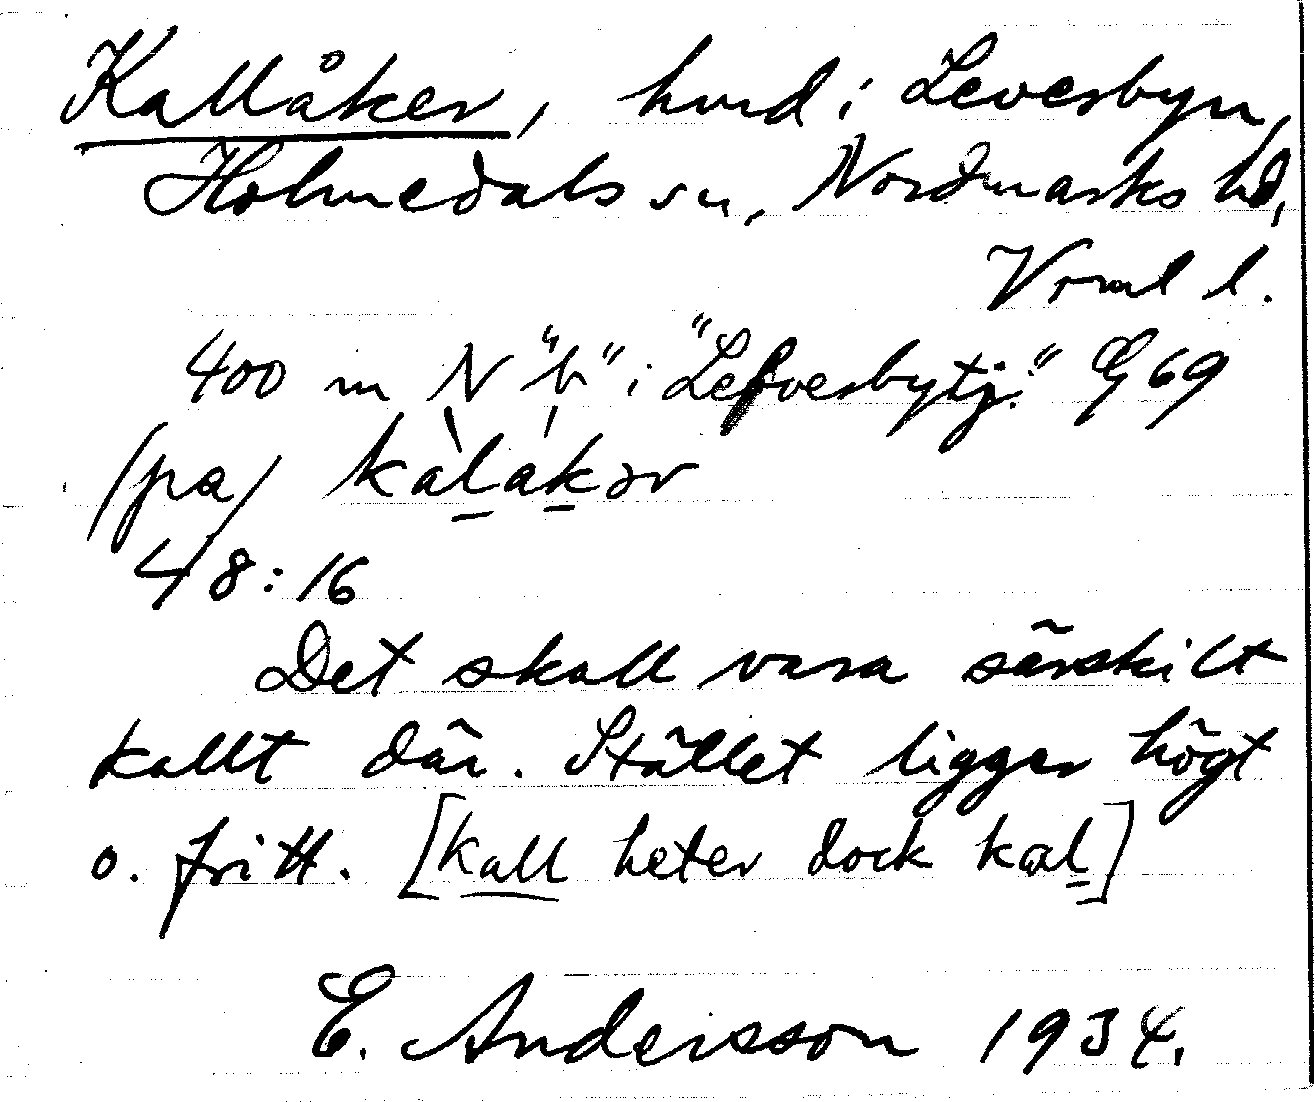 Kallåker, hmd i Leverbyn,
Holmedals sn, Nordmarks hd,
Vrml l.
400 m N "b" i "Lefverbytj." G 69
/pa/ kàlákər
48:16
Det skall vara särskilt
kallt där. Stället ligger högt
o. fritt. [kall heter dock kal]
E. Andersson 1934.